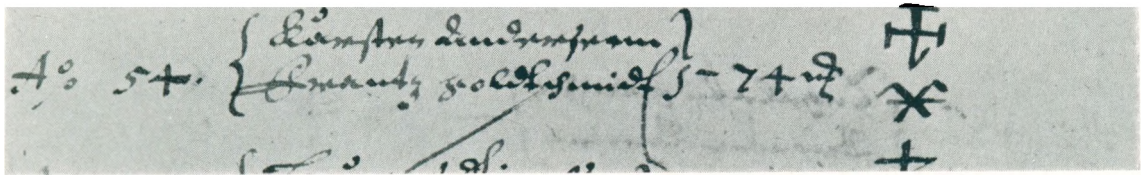 Aº 54. { Karsten Andersenn
Frantz goldtschmidt } - 74 mk